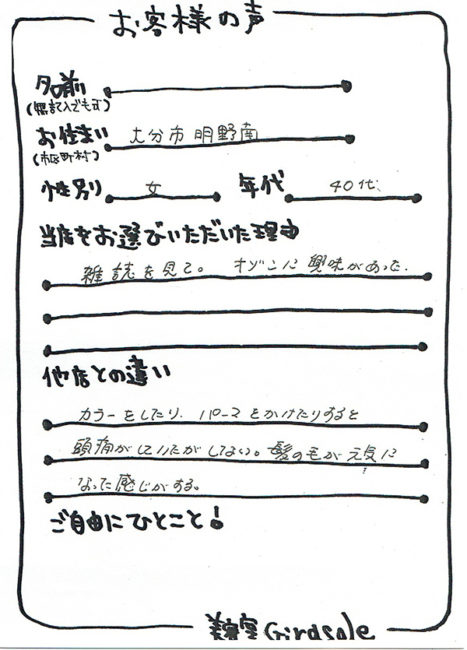 お客様の声
名前
(無記入でも可)
お住まい 大分市 明野南
(市区町村)
性別 女 年代 40代、
当店をお選びいただいた理由
雑誌を見て。 オゾンに興味があった.
他店との違い
カラーをしたり、パーマをかけたりすると
頭痛がしていたがしない。髪の毛が元気に
なった感じがする。
ご自由にひとこと!
美容室